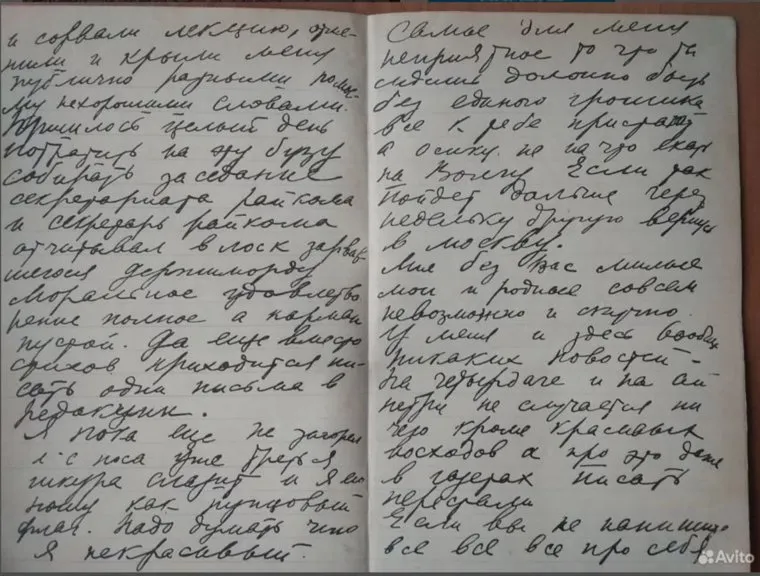 и сорвали лекцию, отме-
нили и крыли меня
публично разными по-мо-
му нехорошими словами.
Пришлось целый день
потратить на эту бузу
собирать заседание
секретариата райкома
и секретарь райкома
отчитывал в лоск зарвав-
шегося держиморду
моральное удовлетво-
рение полное а карман
пустой. Да еще вместо
стихов приходится пи-
сать одни письма в
редакции.
Я пока еще не загорел
с носа уже третья
шкура слазит и я его
ношу как пунцовый
флаг. Надо думать что
я некрасивый.
Самое для меня
неприятное то что ты
сидишь должно быть
без единого грошика
все к тебе пристают
а осику не на что ехать
на Волгу Если так
пойдет дальше через
недельку другую вернусь
в москву.
Мне без Вас милые
мои и родные совсем
невозможно и скучно.
У меня и здесь вообще
никаких новостей -
на чатырдаге и на ай
петри не случается ни
чего кроме красивых
восходов а про это даже
в газетах писать
перестали
Если вы не напишите
все все все про себя
Avito